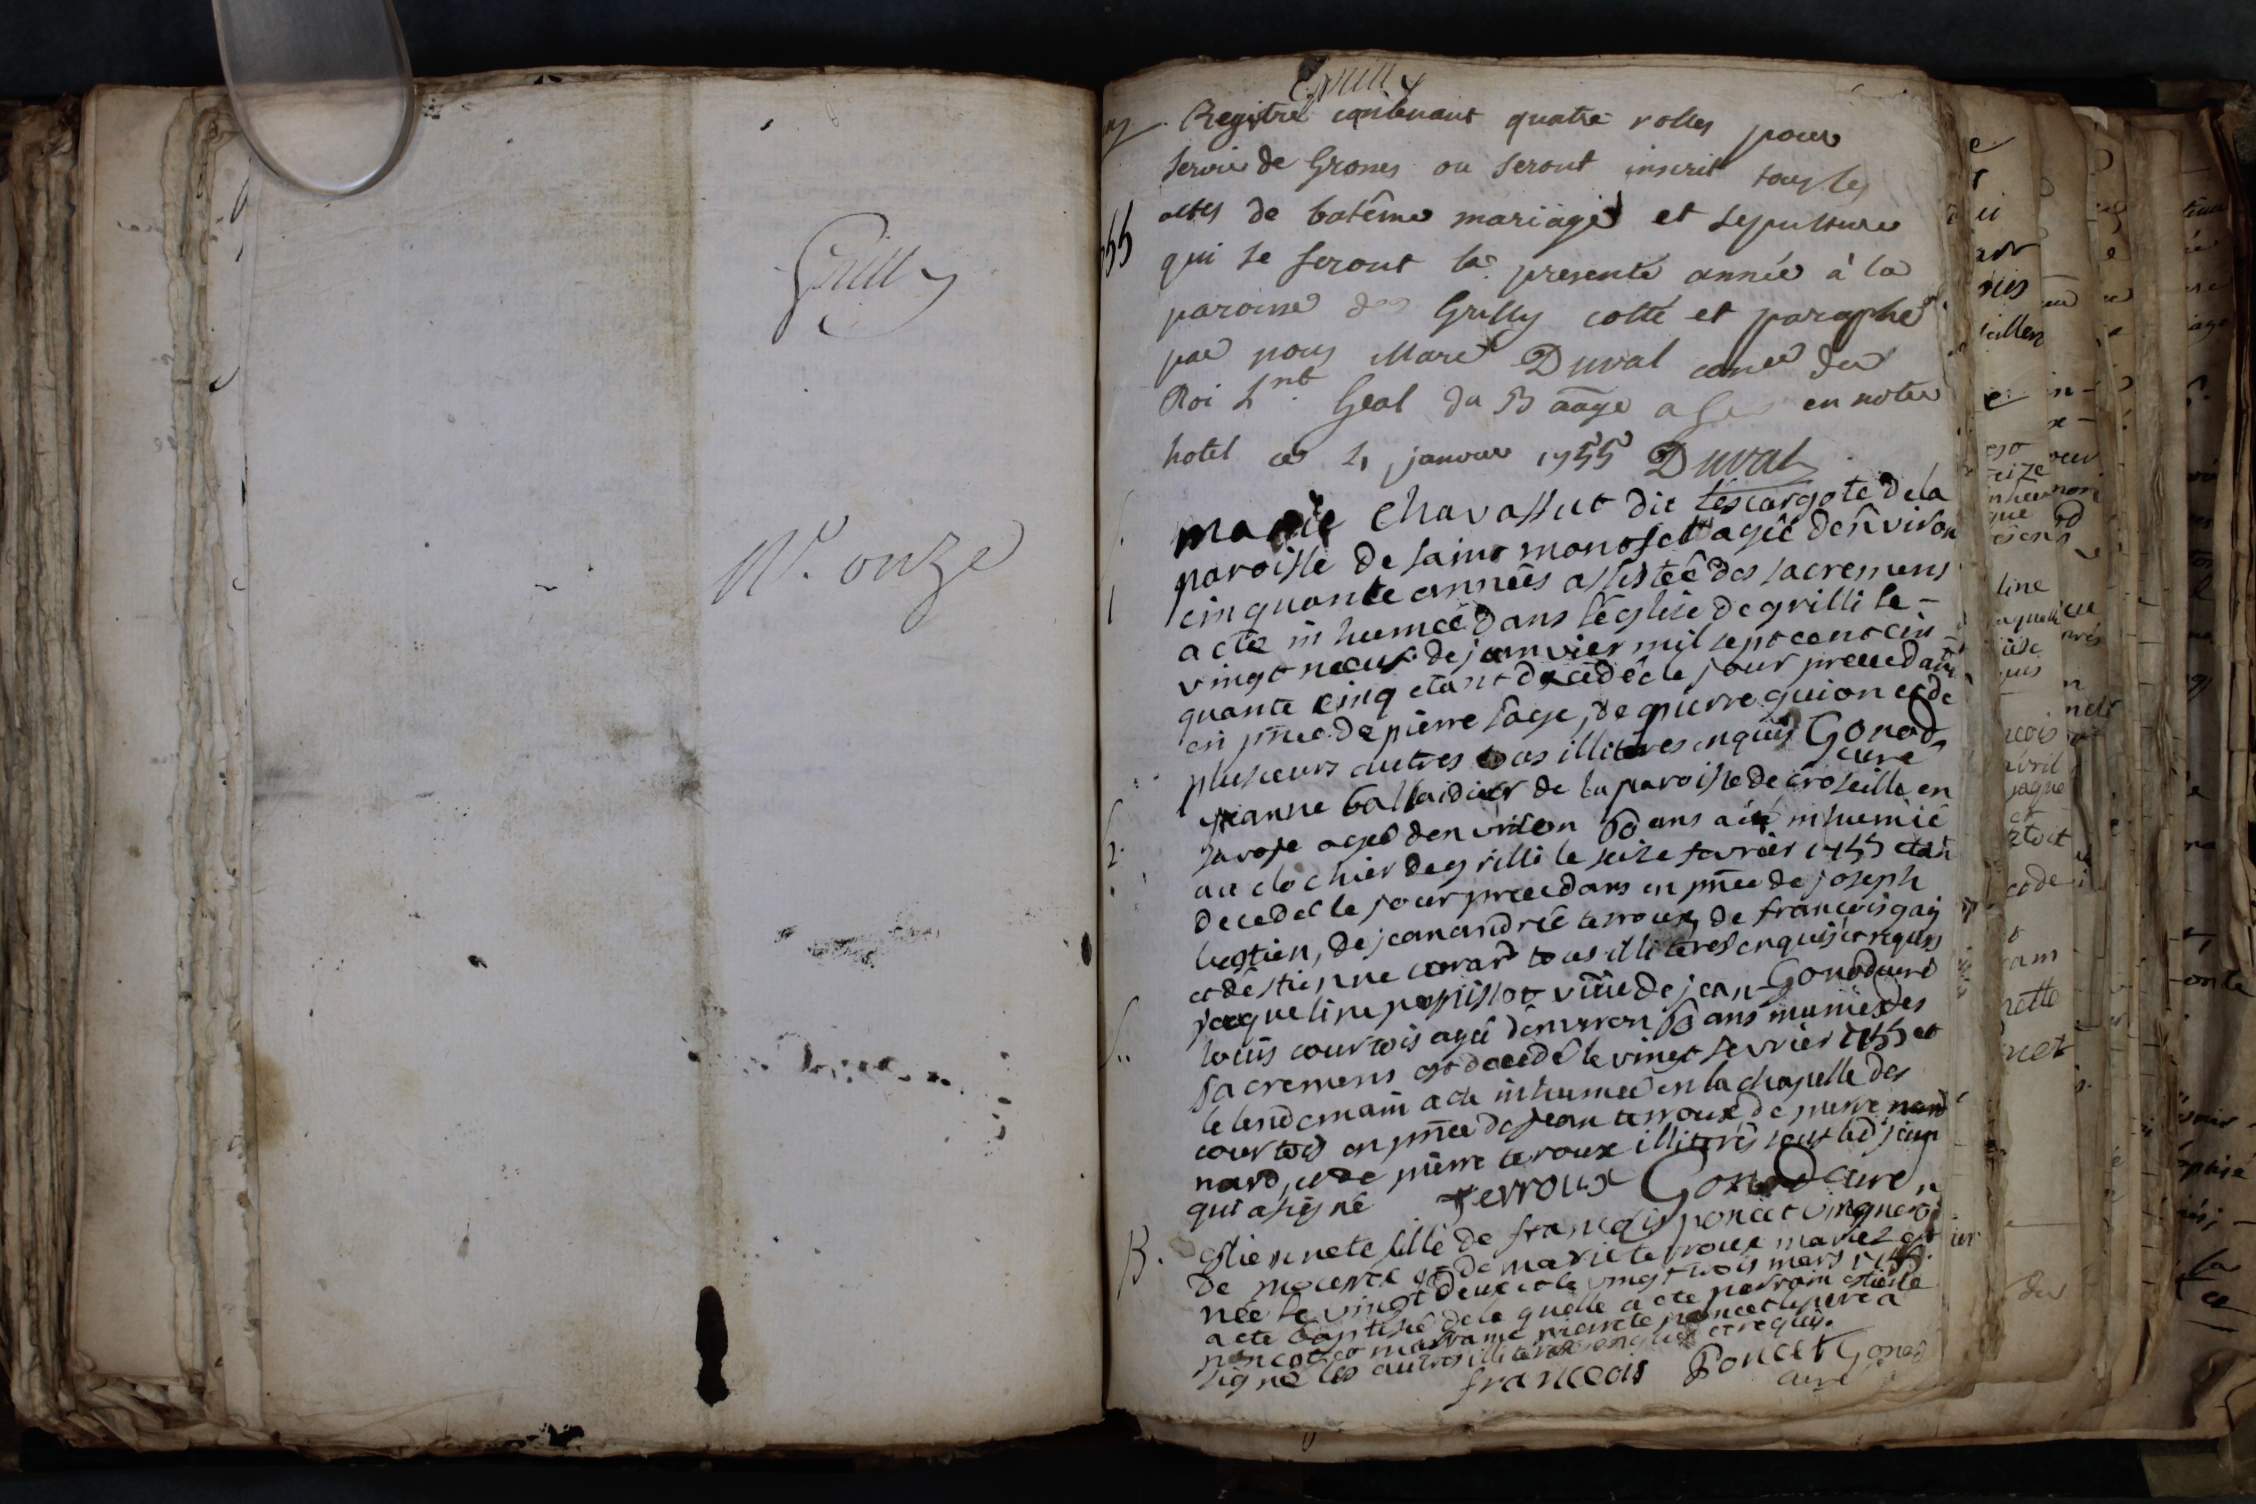 Grilly
N.º onze
Grilly
Registre contenant quatre rolles pour
servir de Gronss ou seront inscrit tous les
actes de batême mariage et sepulture
qui se feront la presente année à la
paroisse de Grilly cotté et paraphé
par nous Marc Duval coner du
Roi Lnt Geal du Baage a Gex en notre
hotel ce 2 janvier 1755 Duval
1755
S.
1
marie Chavassut dit lescargote de la
paroisse de saint agée denviron
cinquante années assistée des sacremens
a cté inhumée dans léglise de grilli le
vingt neuf de janvier mil sept cent cin
quante cinq etant decedée le jour precedant
en pñce de pierre sage, de pierre guion et de
plusieurs autres tous illitéres enquis Gonod
curé
S.
2.
jeanne balladier de la paroisse de croseille en
savoye agée denviron 60 ans a été inhumée
au clochier de grilli le seize fevrier 1755 etant
decedée le jour precedans en pñce de joseph
bastien, de jean andré terroux, de françois gay
et destienne tous illiteres enquis et requis
Gonod curé
S..
jaqueline vuve de jean
louis courtois agée denviron 60 ans munie des
sacremens est decedé le vingt fevrier 1755 et
le lendemain a cte inhumée en la chapelle des
courtois en pñce de jean terroux de pierre
nard, et de pierre teroux illiterés sauf led jean
qui a signé terroux Gonod curé
B.
estiennete fille de françois poncet vigneron
de et de marie terroux mariez est
née le vingt deux et le vingt trois mars 1755
a cte baptisé de la quelle a cte parrain estienne
poncet et marraine pierrete poncet le pere a
signé les autres illiterez enquis et requis.
francois Poncet Gonod
curé